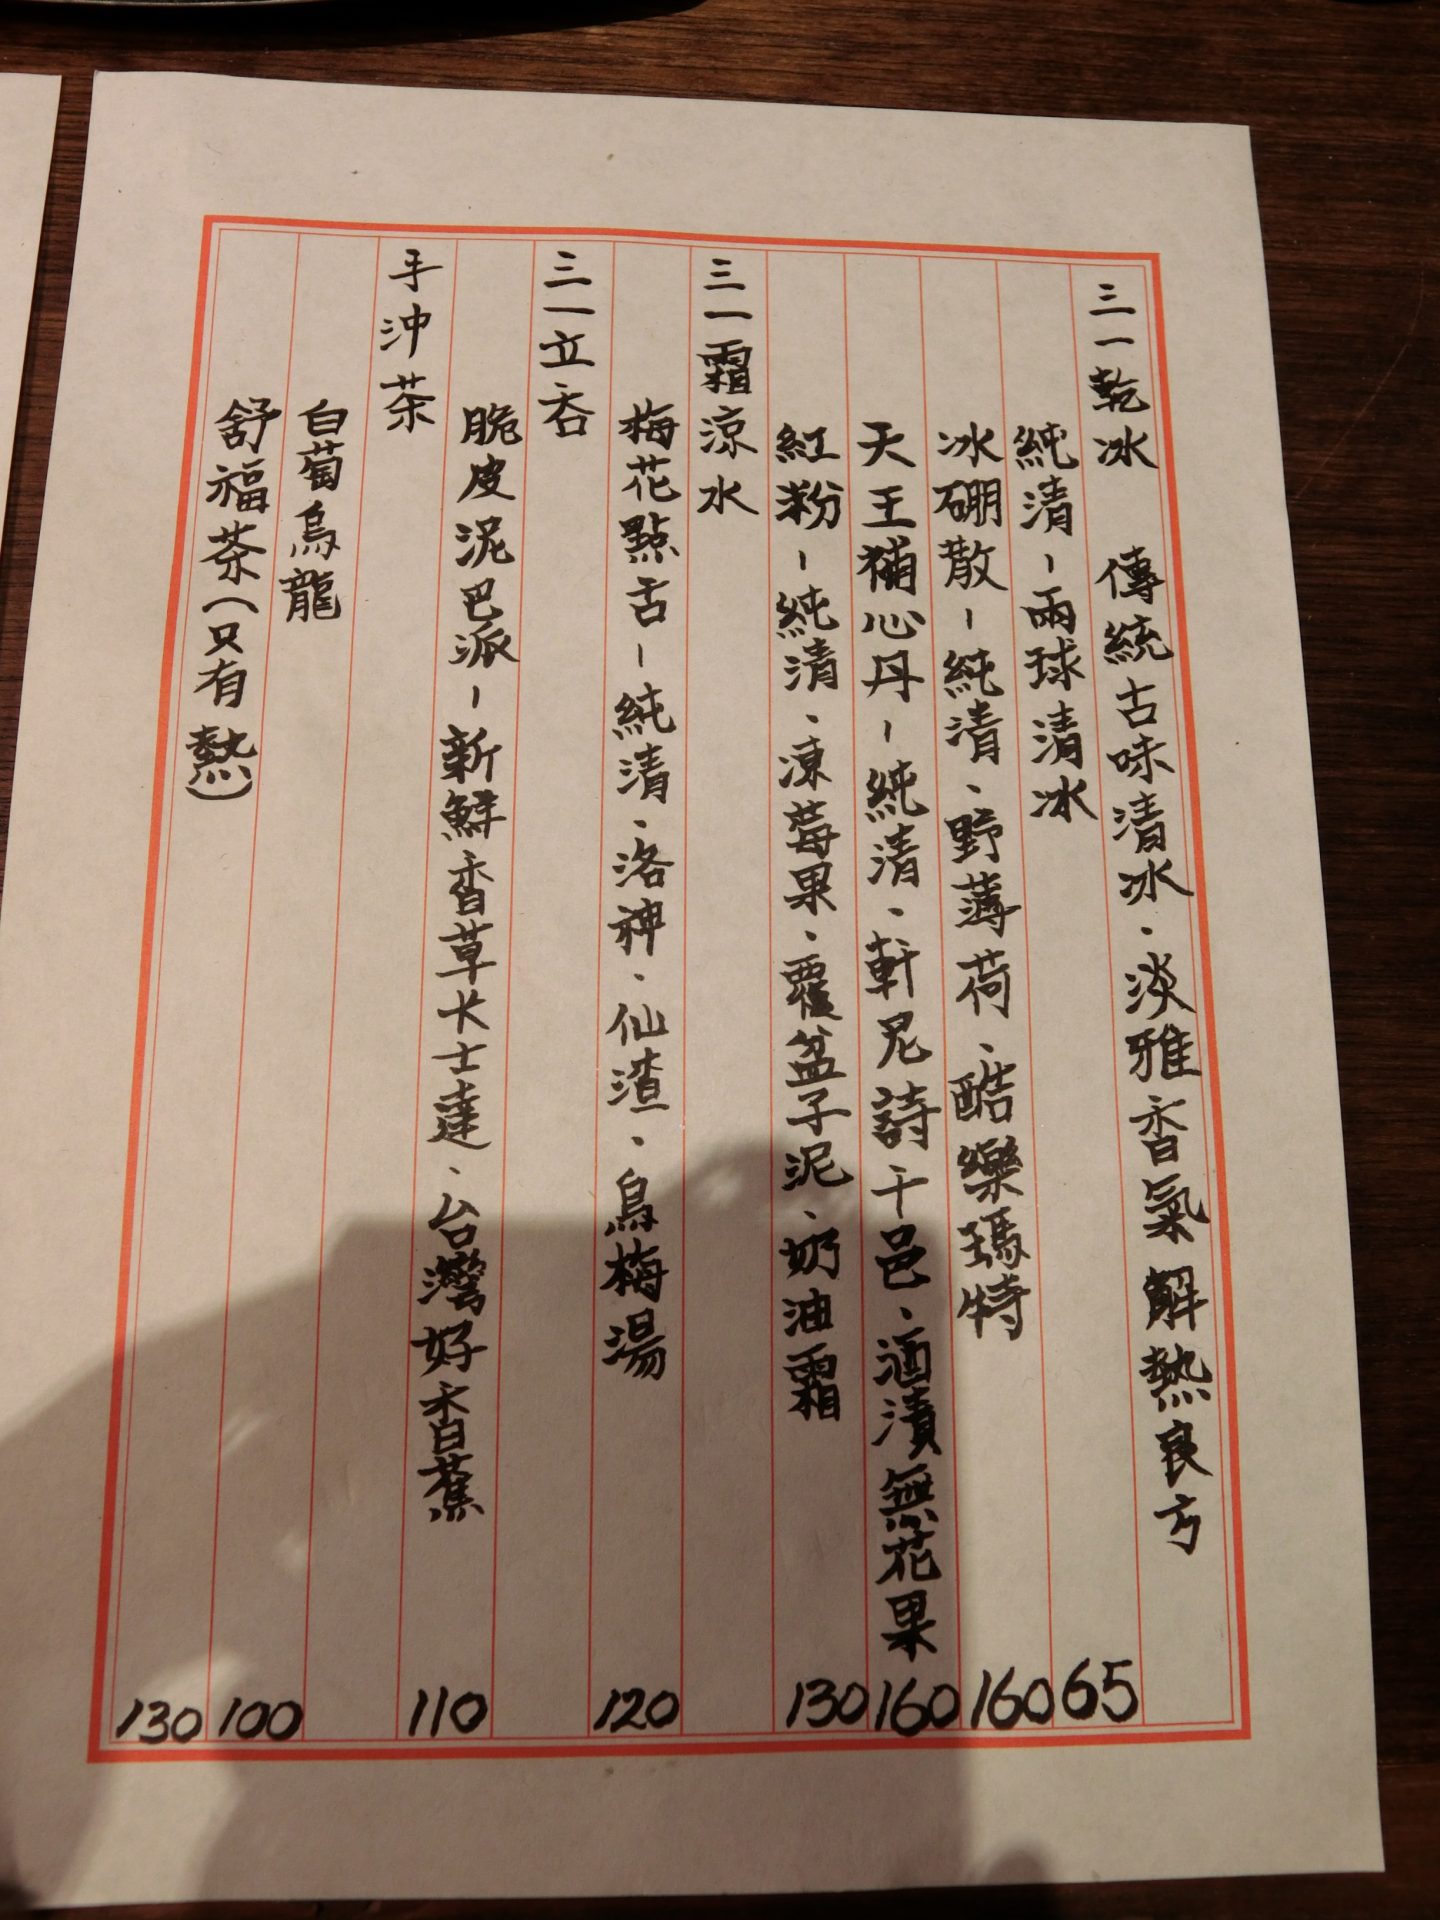 三一乾冰 傳統古味清冰、淡雅香氣 解熱良方
純清-兩球清冰 65
冰硼散-純清、野薄荷、酷樂瑪特 160
天王補心丹-純清、軒尼詩干邑、酒漬無花果 160
紅粉-純清、凍莓果、覆盆子泥、奶油霜 130
三一霜涼水
梅花點舌-純清、洛神、仙渣、烏梅湯 120
三一立吞
脆皮泥巴派-新鮮香草卡士達、台灣好香蕉 110
手沖茶
白萄烏龍 100
舒福茶(只有熱) 130